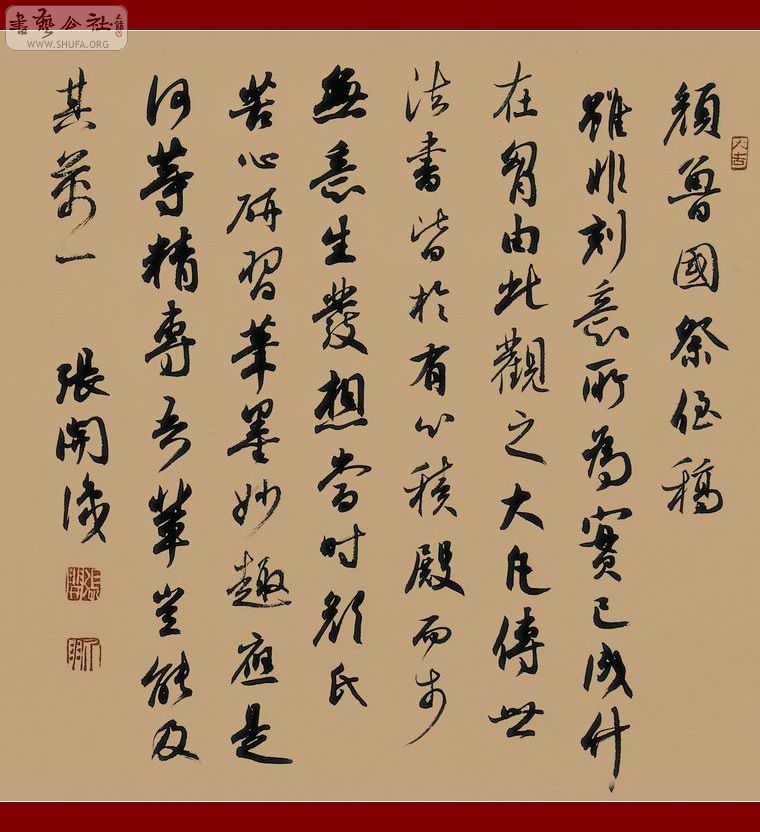 書藝公社
WWW.SHUFA.ORG
顏魯國祭侄稿
雖非刻意所為實已成竹
在胸由此觀之大凡傳世
法書皆於有心積殿而於
無意生發想當時顏氏
苦心研習筆墨妙趣應是
何等精專吾輩豈能及
其萬一 張開